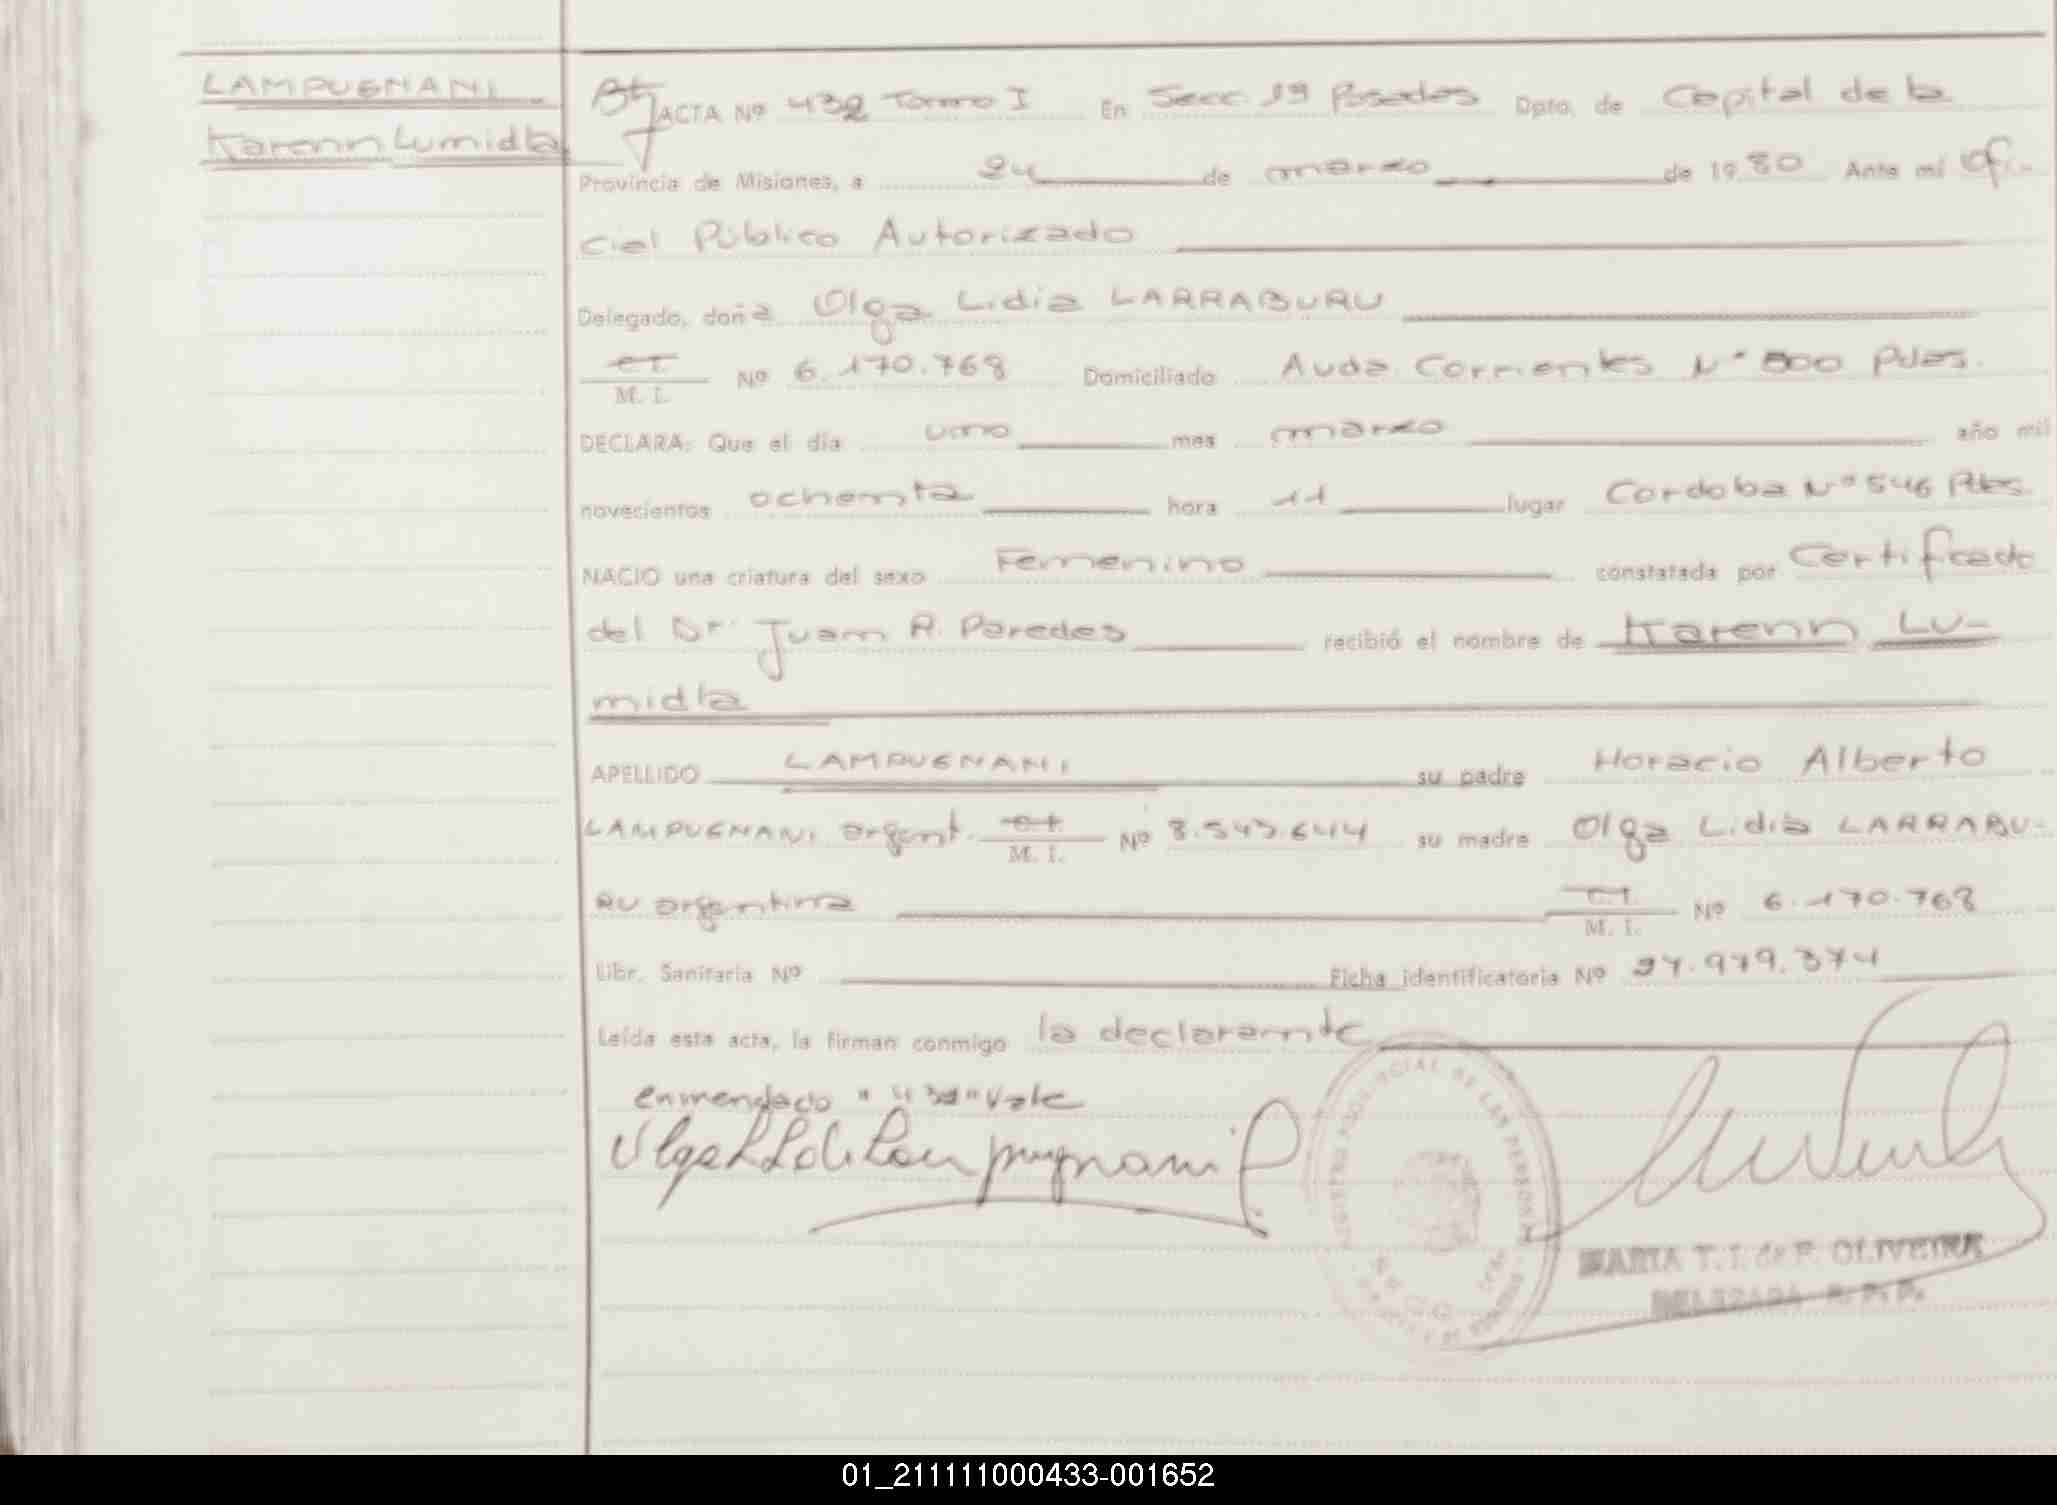 LAMPUGNANI
Karenn Lumidla
ACTA Nº 432 Tomo I En Secc. 1ª Posadas Dpto. de Capital de la
Provincia de Misiones, a 24 de marzo de 1980 Ante mí Ofi-
cial Público Autorizado
Delegado, doña Olga Lidia LARRABURU
C.I.
M. I. Nº 6.170.768 Domiciliado Avda. Corrientes Nº 800 Pdas.
DECLARA: Que el día uno mes marzo año mil
novecientos ochenta hora 11 lugar Cordoba Nº 546 Pdas.
NACIO una criatura del sexo Femenino constatada por Certificado
del Dr. Juan R. Paredes recibió el nombre de Karenn Lu-
midla
APELLIDO LAMPUGNANI su padre Horacio Alberto
LAMPUGNANI argent. C.I.
M. I. Nº 8.543.644 su madre Olga Lidia LARRABU-
RU argentina C.I.
M. I. Nº 6.170.768
Libr. Sanitaria Nº Ficha identificatoria Nº 27.979.374
Leída esta acta, la firman conmigo la declarante
enmendado "432" Vale
Olga L. L. de Lampugnani
REGISTRO PROVINCIAL DE LAS PERSONAS
MARIA T. I. de F. OLIVEIRA
DELEGADA R. P. P.
01_211111000433-001652